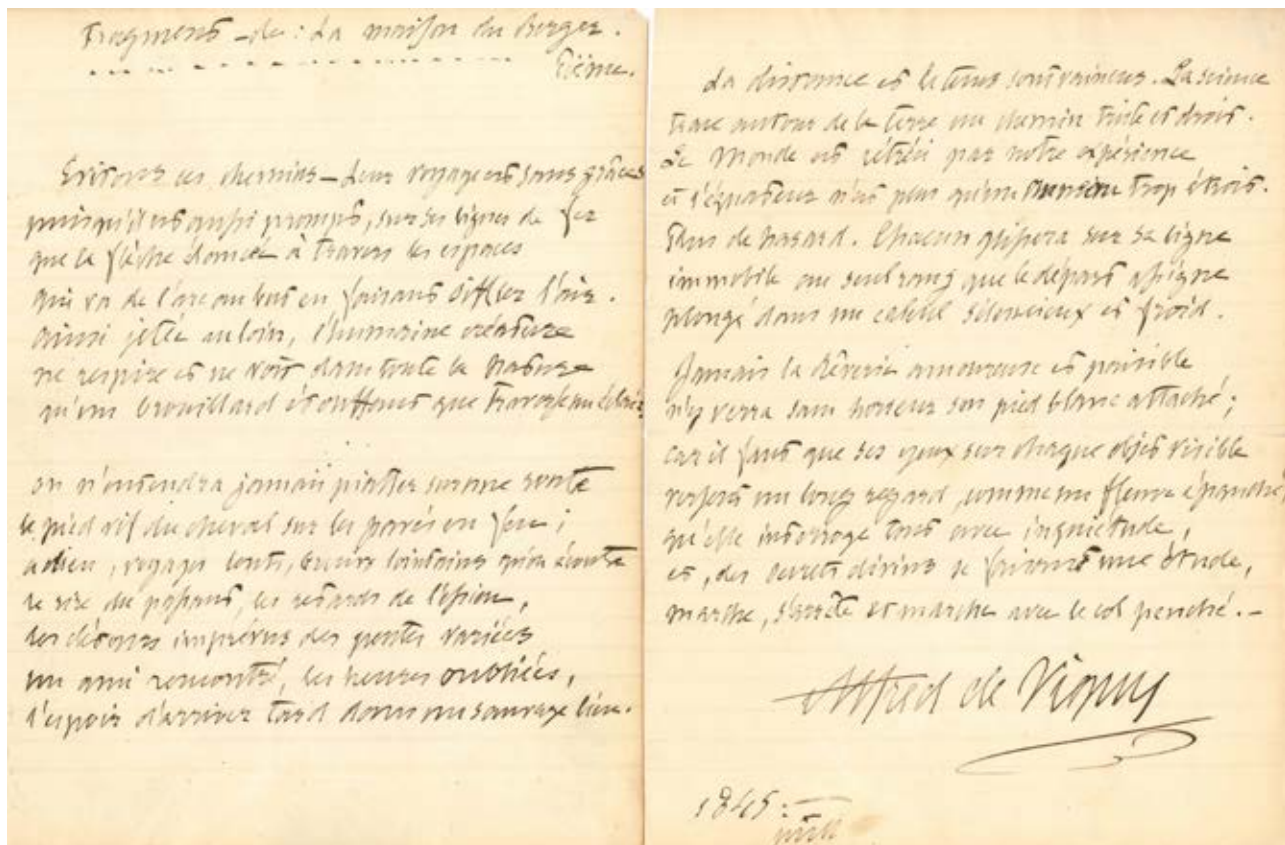 Fragments - de : La maison du Berger.
Poëme.
Evitons ces chemins - Leur voyage est sans grâces
puisqu'il est aussi prompt, sur ses lignes de fer
que la flèche élancée à travers les espaces
qui va de l'arc au but en faisant siffler l'air.
ainsi jetée au loin, l'humaine créature
ne respire et ne voit dans toute la nature
qu'un brouillard étouffant que traverse un éclair.
on n'entendra jamais piaffer sur une route
le pied vif du cheval sur les pavés en feu ;
adieu, voyages lents, bruits lointains qu'on écoute
le rire du passant, les retards de l'essieu,
les détours imprévus des pentes variées
un ami rencontré, les heures oubliées,
l'espoir d'arriver tard dans un sauvage lieu.
La distance et le tems sont vaincus. La science
trace autour de la terre un chemin triste et droit.
Le Monde est rétréci par notre expérience
et l'équateur n'est plus qu'un anneau trop étroit.
Plus de hasard. Chacun glissera sur sa ligne
immobile au seul rang que le départ assigne
plongé dans un calcul silencieux et froid.
Jamais la Rêverie amoureuse et paisible
n'y verra sans horreur son pied blanc attaché ;
car il faut que ses yeux sur chaque objet visible
versent un long regard, comme un fleuve épanché,
qu'elle interroge tout avec inquiétude,
et, des secrets divins se faisant une étude,
marche, s'arrête et marche avec le col penché. -
Alfred de Vigny
1845 :